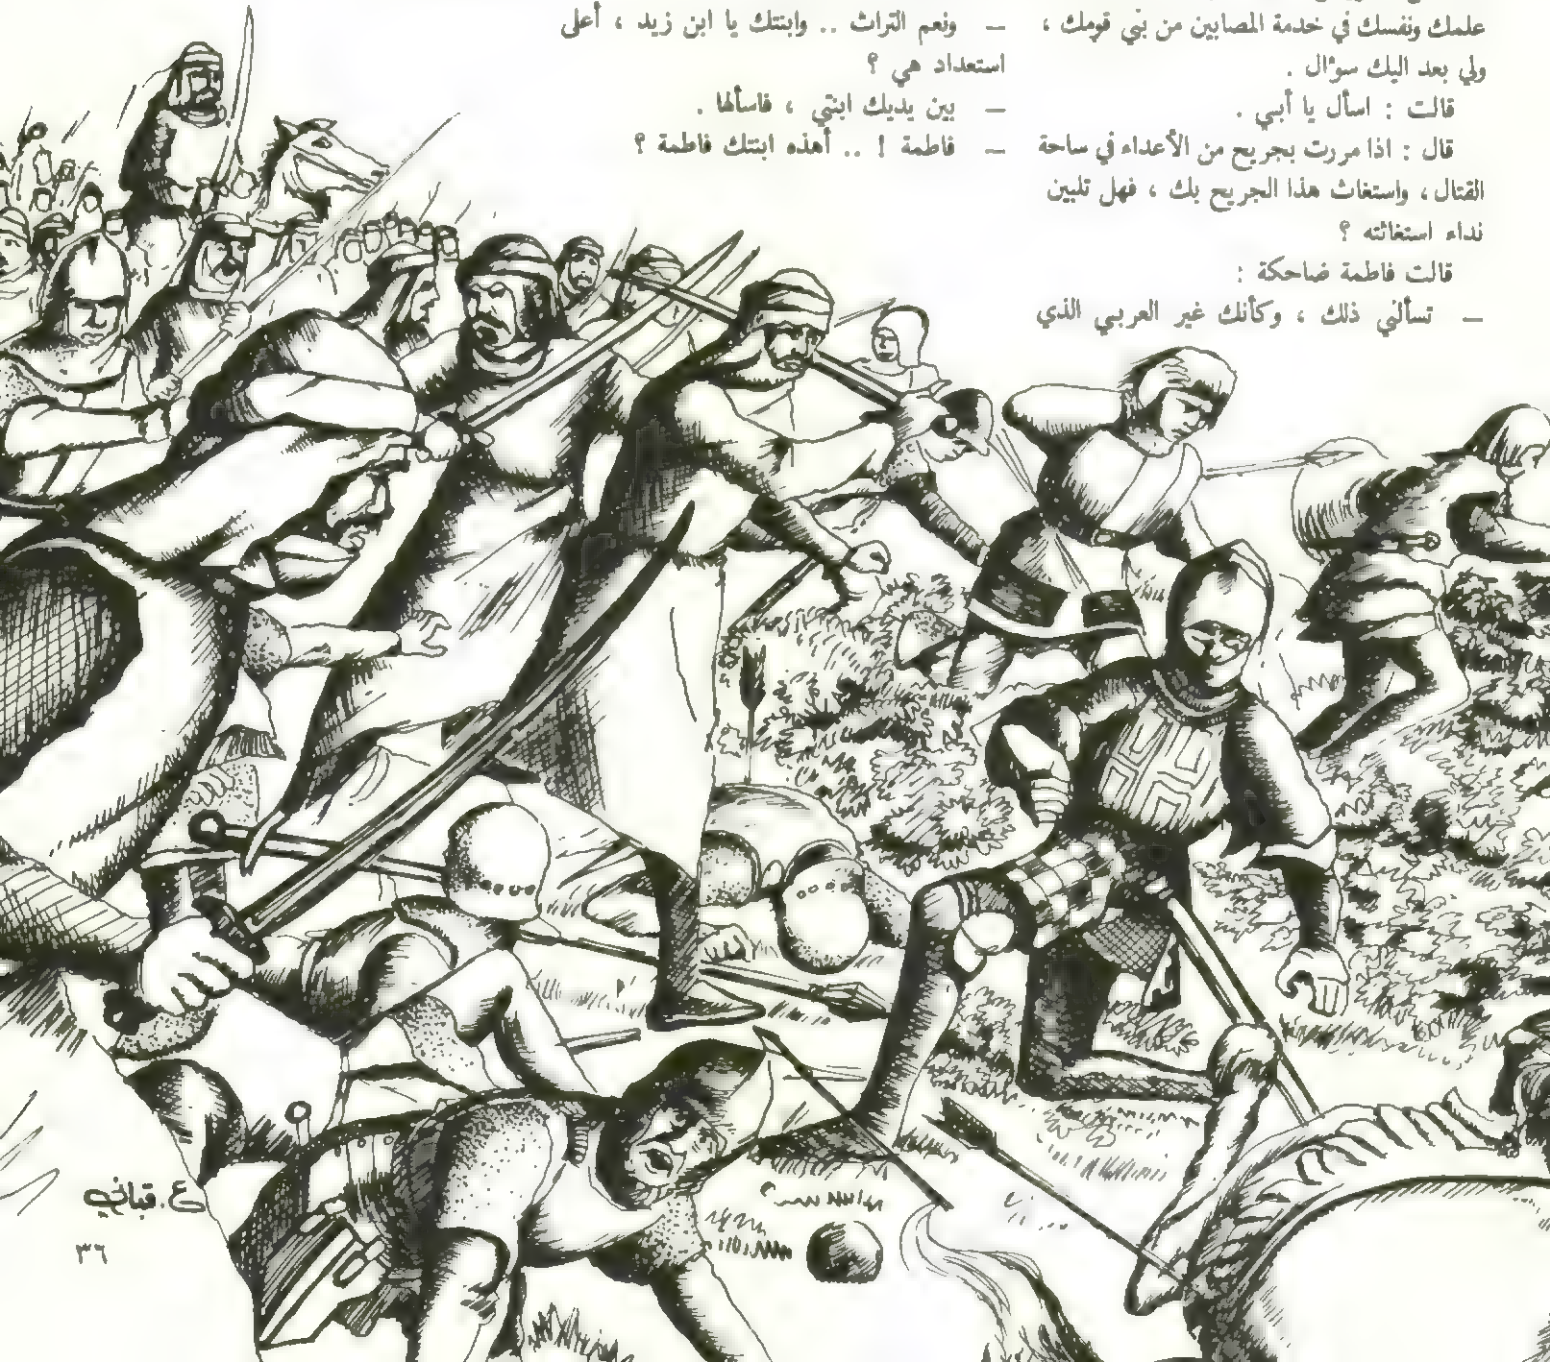 علمك ونفسك في خدمة المصابين من بني قومك ،
ولي بعد اليك سؤال .
قالت : اسأل يا أبي .
قال : اذا مررت بجريح من الأعداء في ساحة
القتال ، واستغاث هذا الجريح بك ، فهل تلبين
نداء استغاثته ؟
قالت فاطمة ضاحكة :
— تسألني ذلك ، وكأنك غير العربي الذي
— ونعم التراث .. وابنتك يا ابن زيد ، أعلى
استعداد هي ؟
— بين يديك ابنتي ، فاسألها .
— فاطمة ! .. أهذه ابنتك فاطمة ؟
ع. قباني
٣٦